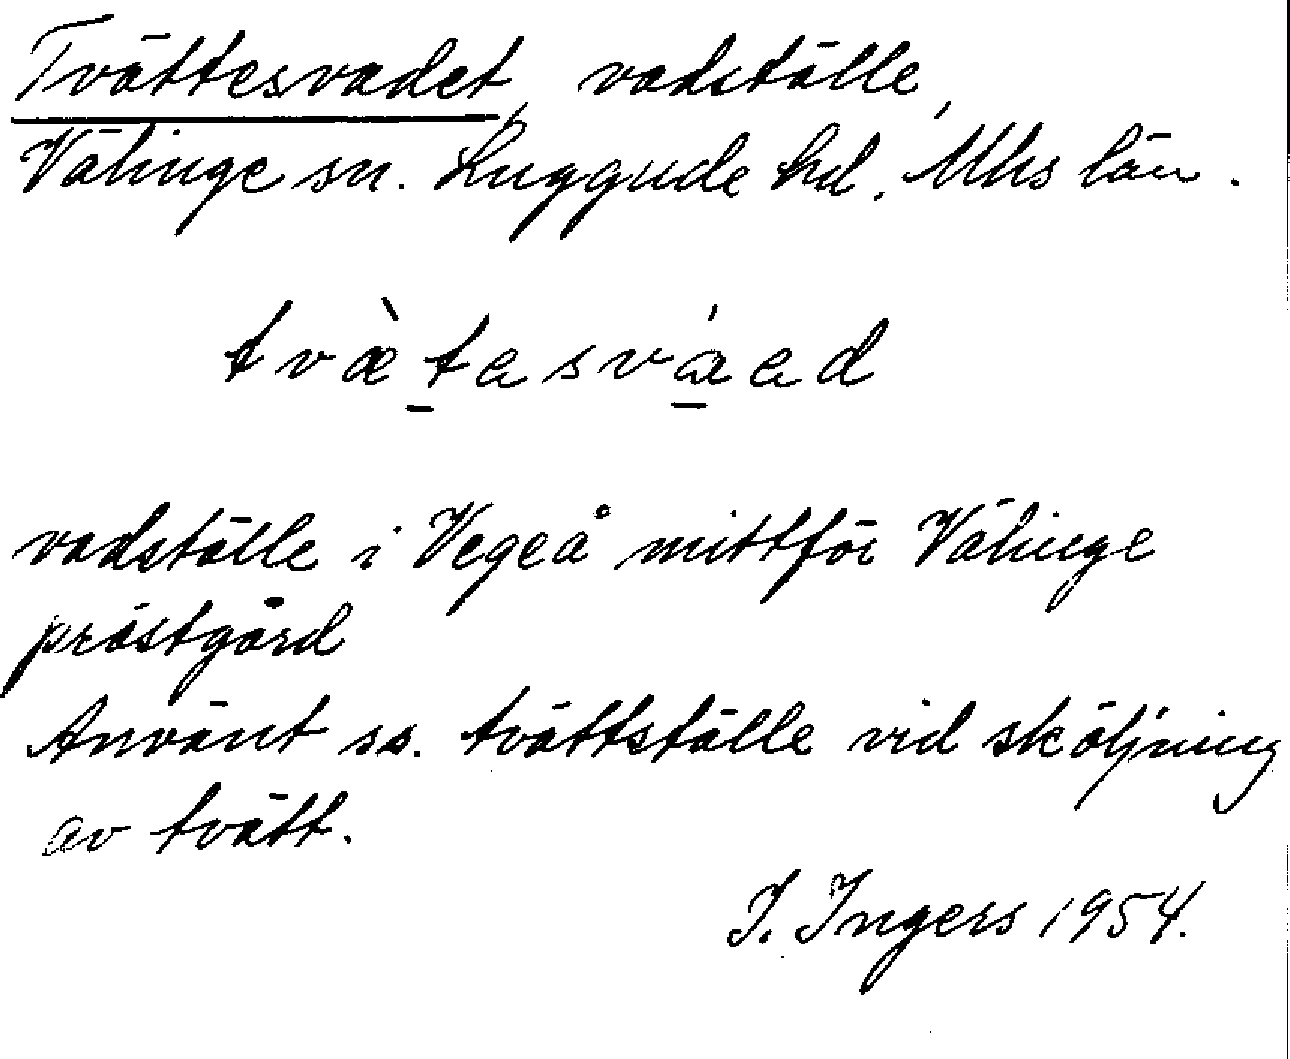 Tvättesvadet, vadställe,
Välinge sn. Luggude hd. Mhs län.
tvæ̀t̲asvá̲ad
vadställe i Vegeå mittför Välinge
prästgård
Använt ss. tvättställe vid sköljning
av tvätt.
I. Ingers 1954.